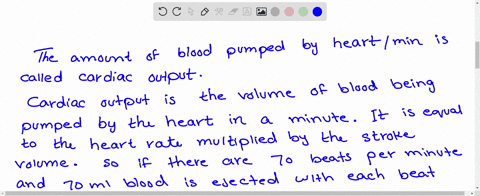 The amount of blood pumped by heart/min is
called cardiac output.
Cardiac output is the volume of blood being
pumped by the heart in a minute. It is equal
to the heart rate multiplied by the stroke
volume. so if there are 70 beats per minute
and 70 ml blood is ejected with each beat